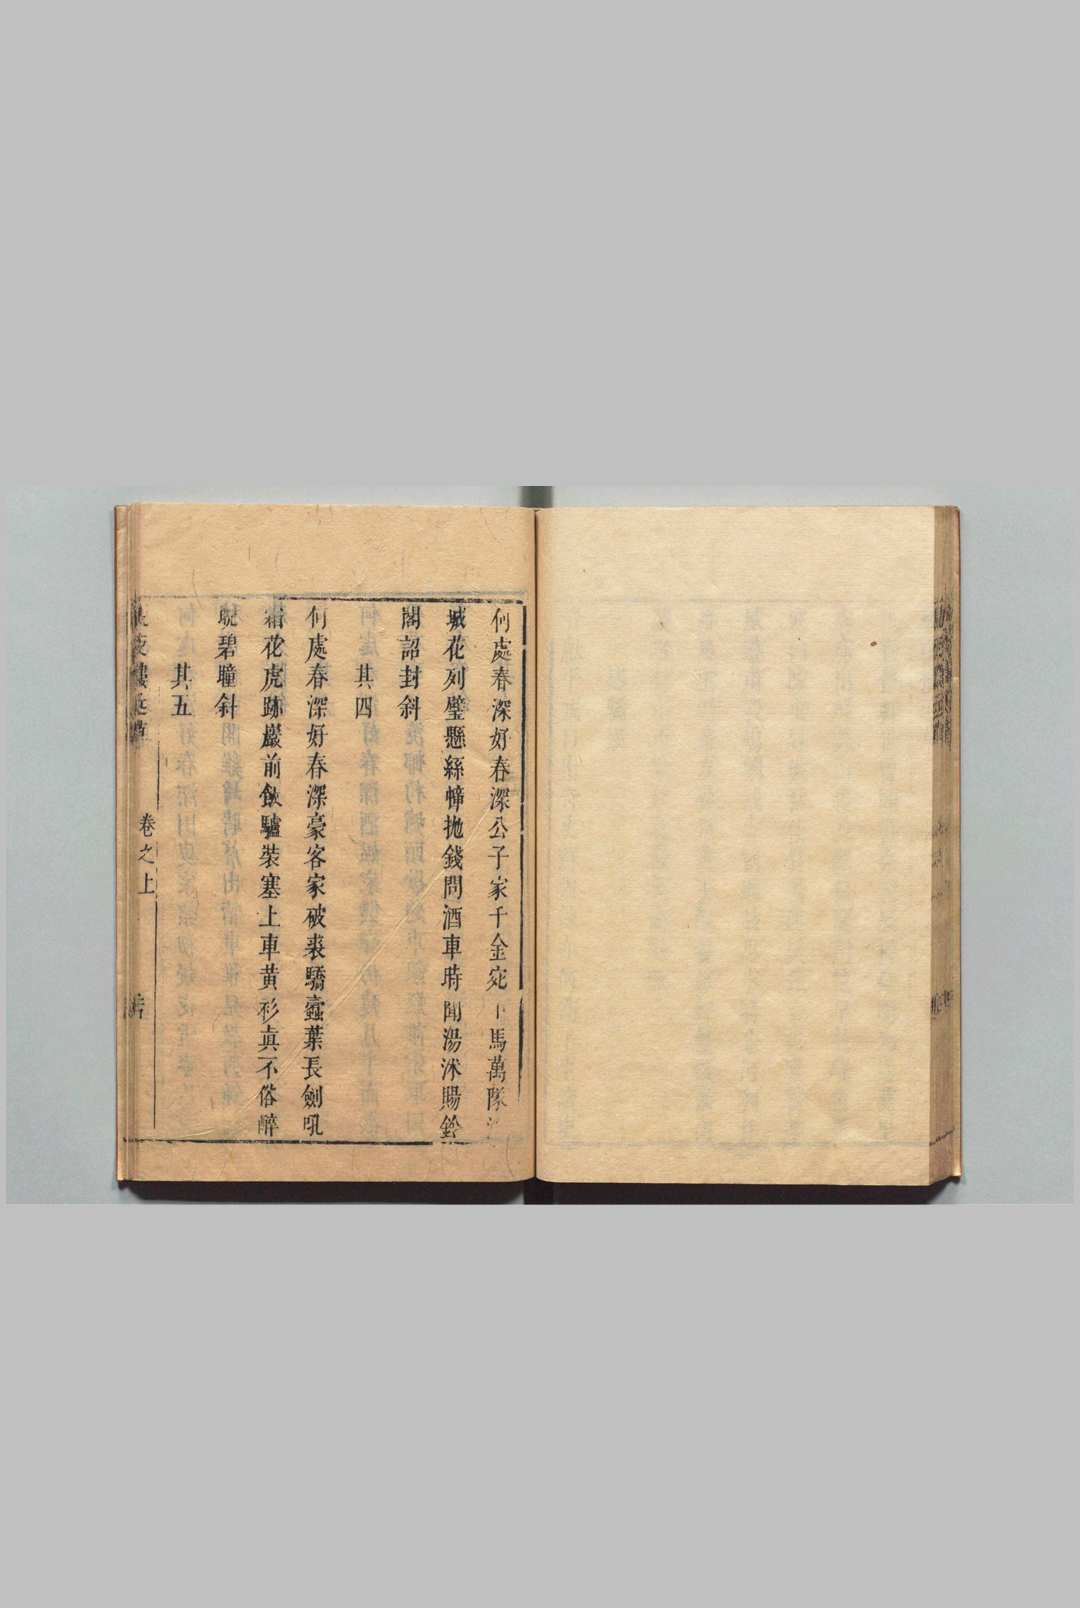 何處春深好春深公子家千金宛 馬萬隊
城花列璧懸絲幰拋錢問酒車時聞湯沐賜鈴
閣詔封斜
其四
何處春深好春深豪客家破裘驕蠹葉長劍吼
霜花虎跡巖前飲驢裝塞上車黃衫真不俗醉
睨碧瞳斜
其五
卷之上